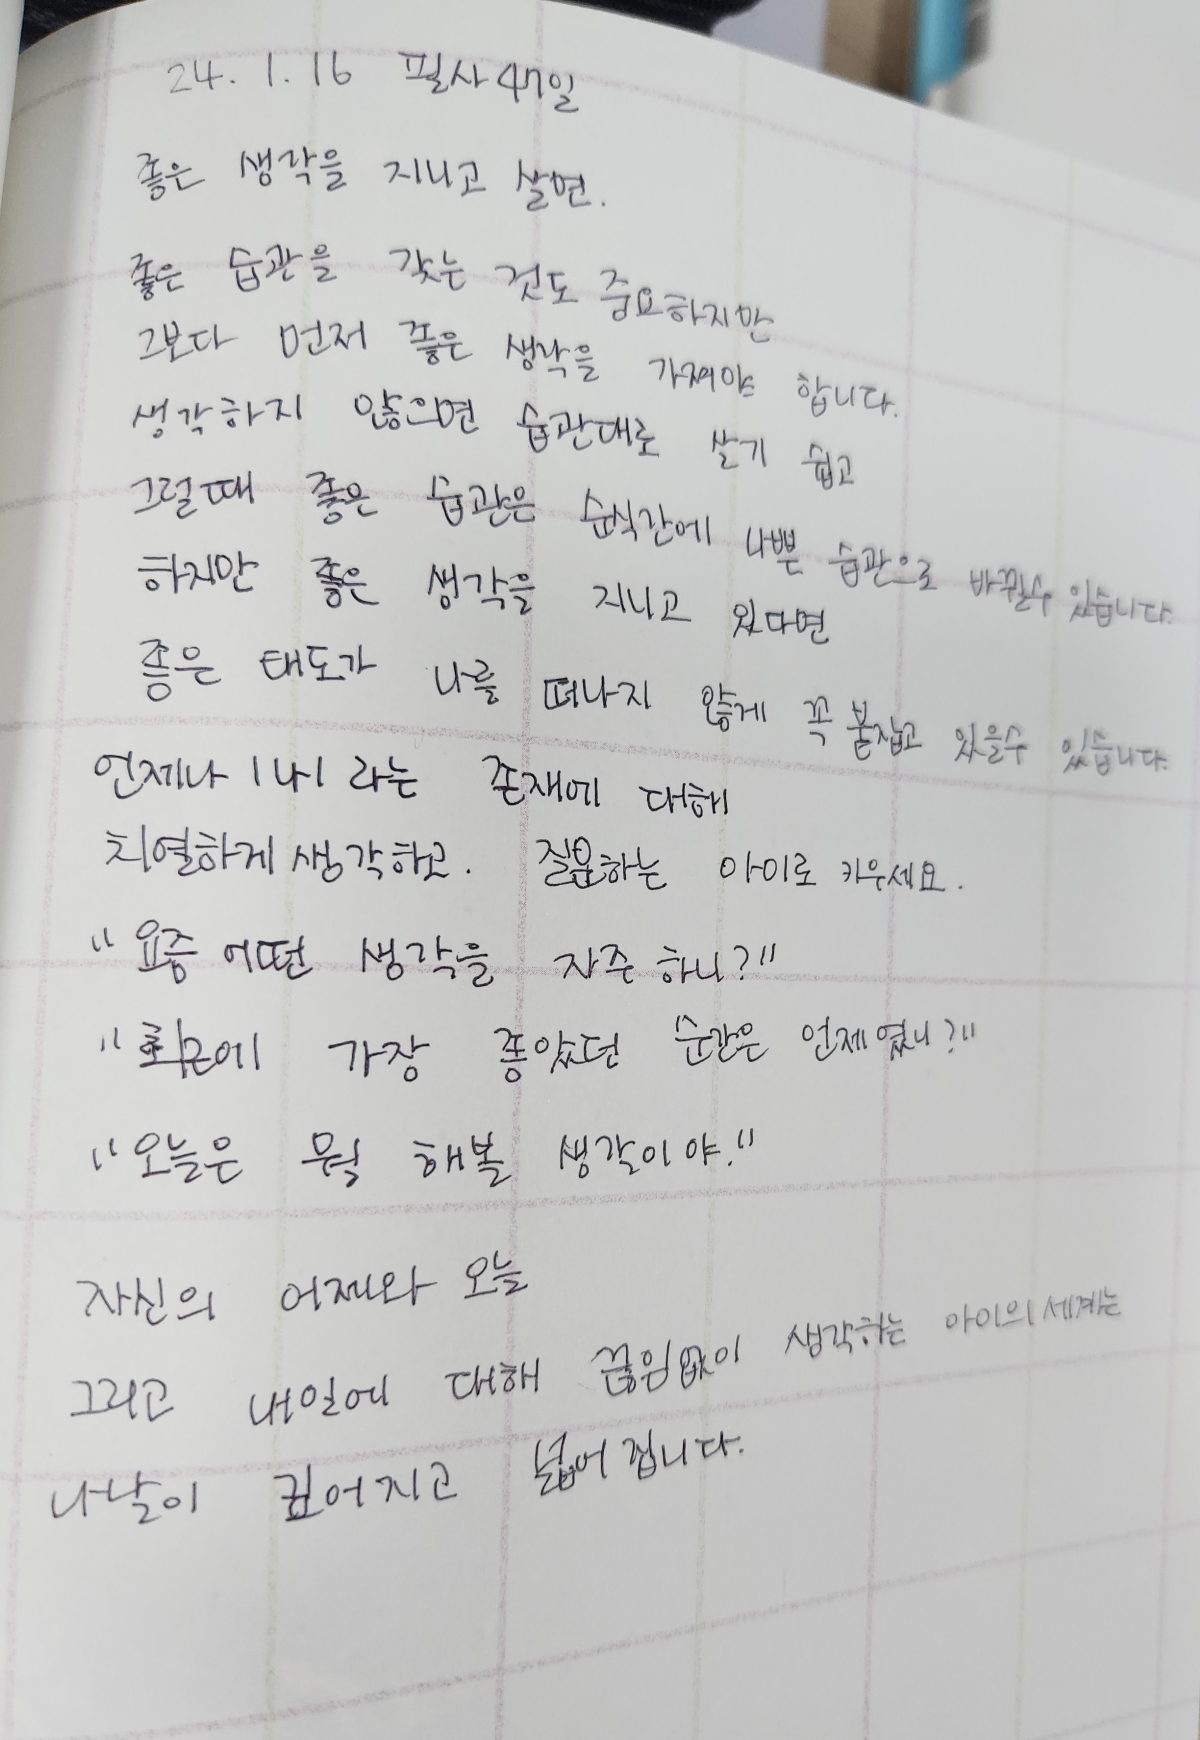 24. 1. 16 필사 47일
좋은 생각을 지니고 살면.
좋은 습관을 갖는 것도 중요하지만
그보다 먼저 좋은 생각을 가져야 합니다.
생각하지 않으면 습관대로 살기 쉽고
그럴때 좋은 습관은 순식간에 나쁜 습관으로 바뀔수 있습니다.
하지만 좋은 생각을 지니고 있다면
좋은 태도가 나를 떠나지 않게 꼭 붙잡고 있을수 있습니다.
언제나 '나' 라는 존재에 대해
치열하게 생각하고. 질문하는 아이로 키우세요.
"요즘 어떤 생각을 자주 하니?"
"최근에 가장 좋았던 순간은 언제였니?"
"오늘은 뭐 해볼 생각이야."
자신의 어제와 오늘
그리고 내일에 대해 끊임없이 생각하는 아이의 세계는
나날이 깊어지고 넓어집니다.